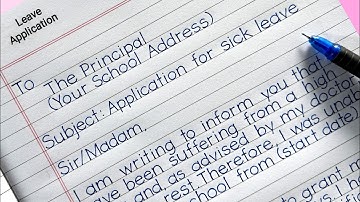 Leave
Application
To
The Principal
(Your School Address)
Subject: Application for sick leave
Sir/Madam,
I am writing to inform you that
have been suffering from a high
and, as advised by my doctor
rest. Therefore, I was una
school from (start date)
to grant